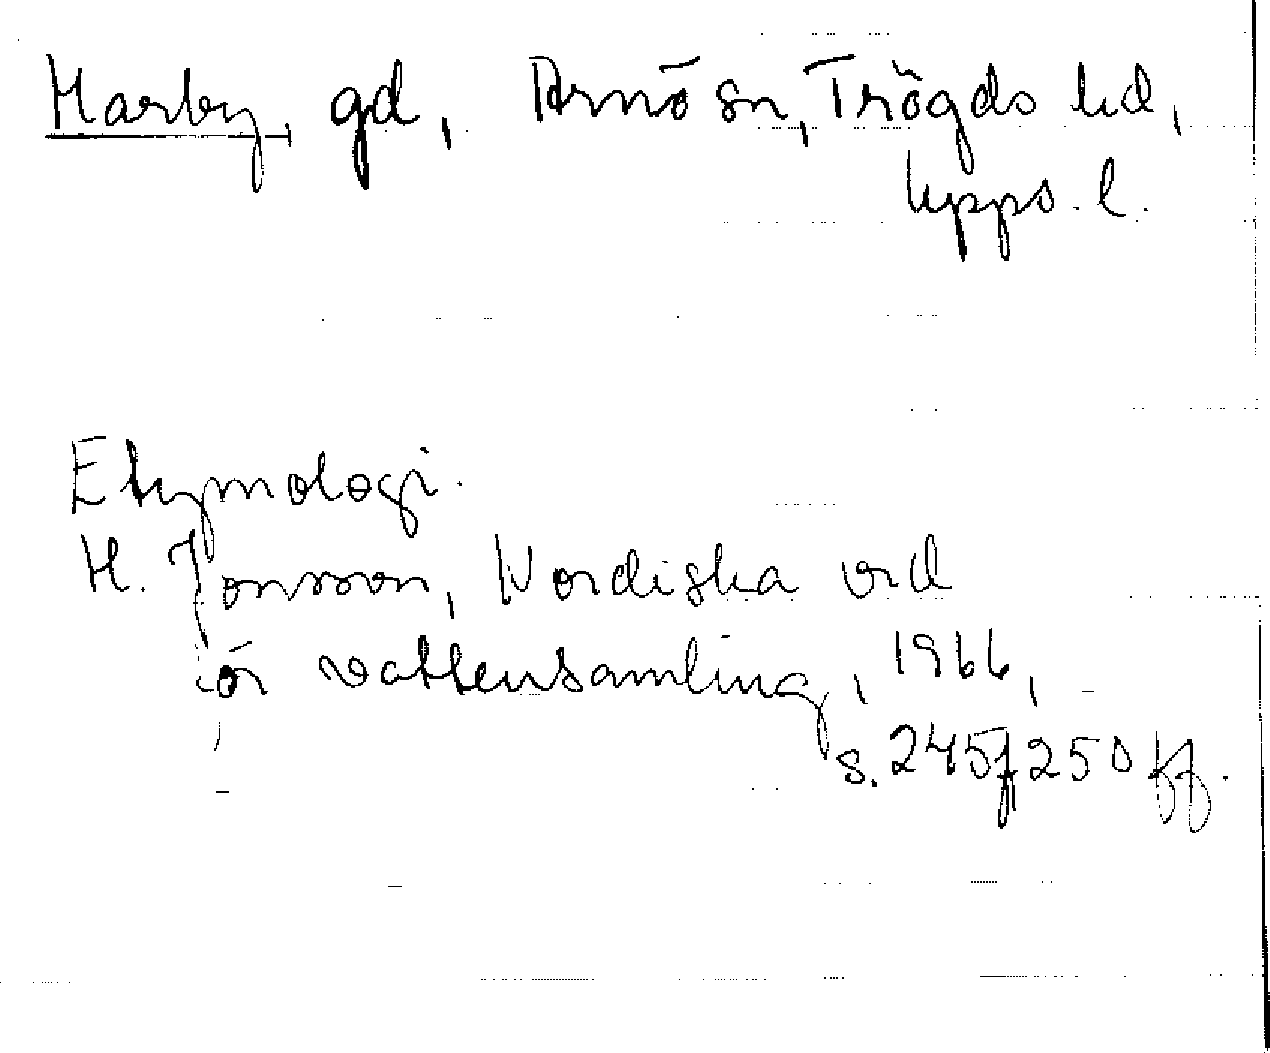 Harby, gd, Arnö sn, Trögds hd,
Upps. l.
Etymologi.
H. Jonsson, Nordiska ord
för vattensamling, 1966,
s. 245f, 250 ff.